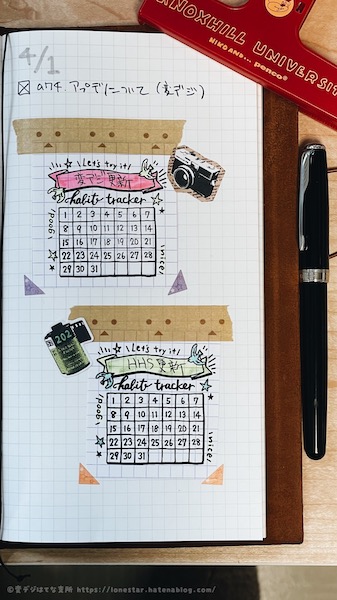 KNOXHILL UNIVERSITY
NIKO AND... penco®
4/1
a74 アプデについて (変デジ)
Let's try it!
変デジ更新
habit tracker
good!
1 2 3 4 5 6 7
8 9 10 11 12 13 14
15 16 17 18 19 20 21
22 23 24 25 26 27 28
29 30 31
nice!
202
Let's try it!
HHS更新
habit tracker
good!
1 2 3 4 5 6 7
8 9 10 11 12 13 14
15 16 17 18 19 20 21
22 23 24 25 26 27 28
29 30 31
nice!
©変デジはてな支所 https://lonestar.hatenablog.com/